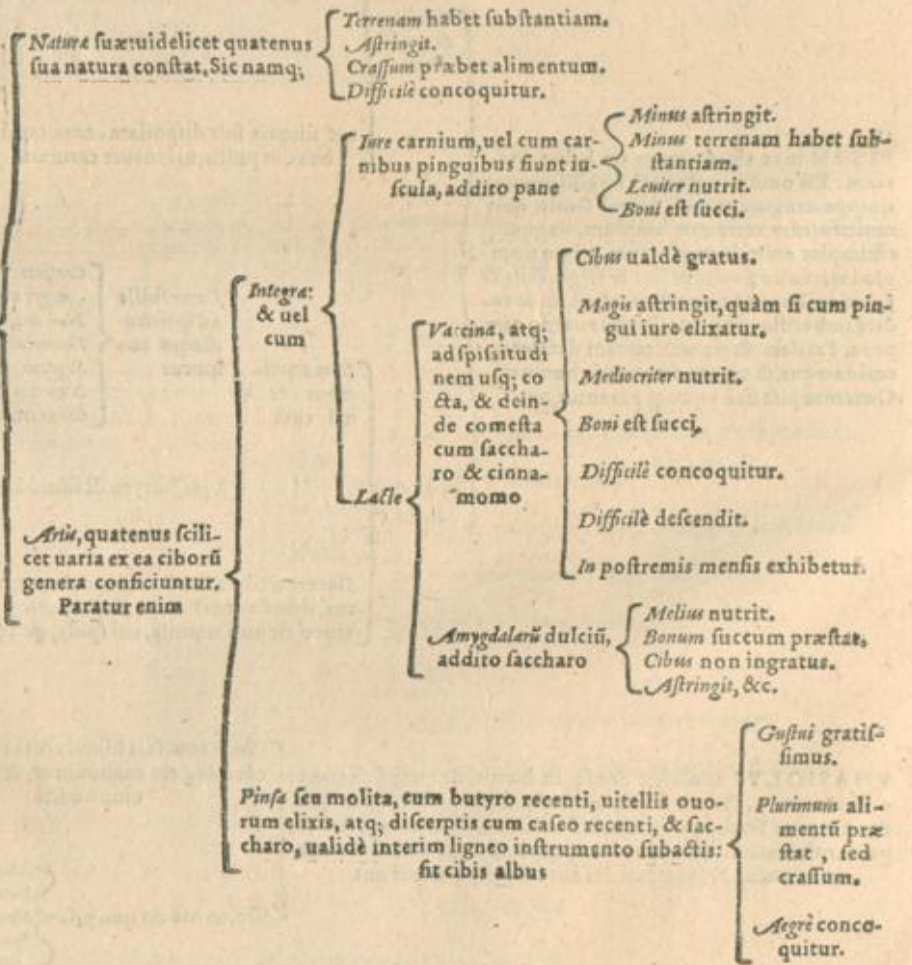 Naturæ suæ: uidelicet quatenus
sua natura constat. Sic namq;
Terrenam habet substantiam.
Astringit.
Crassum præbet alimentum.
Difficilè concoquitur.
Artis, quatenus scili-
cet uaria ex ea ciborũ
genera conficiuntur.
Paratur enim
Integra:
& uel
cum
Iure carnium, uel cum car-
nibus pinguibus fiunt iu-
scula, addito pane
Minus astringit.
Minus terrenam habet sub-
stantiam.
Leuiter nutrit.
Boni est succi.
Lacte
Vaccina, atq;
ad spissitudi
nem usq; co
cta, & dein-
de comesta
cum saccha-
ro & cinna-
momo
Cibus ualdè gratus.
Magis astringit, quàm si cum pin-
gui iure elixatur.
Mediocriter nutrit.
Boni est succi.
Difficilè concoquitur.
Difficilè descendit.
In postremis mensis exhibetur.
Amygdalarũ dulciũ,
addito saccharo
Melius nutrit.
Bonum succum præstat,
Cibus non ingratus.
Astringit, &c.
Pinsa seu molita, cum butyro recenti, uitellis ouo-
rum elixis, atq; discerptis cum caseo recenti, & sac-
charo, ualidè interim ligneo instrumento subactis:
fit cibis albus
Gustui gratis-
simus.
Plurimum ali-
mentũ præ
stat, sed
crassum.
Aegrè conco-
quitur.